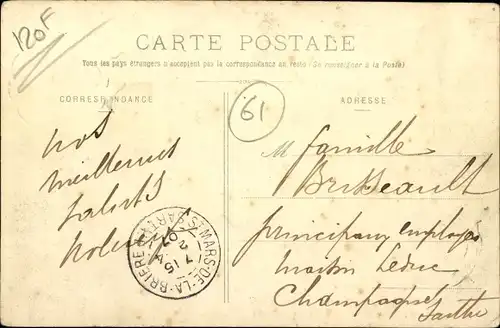 120F
CARTE POSTALE
Tous les pays étrangers n'acceptent pas la correspondance au recto (Se renseigner à la Poste)
CORRESPONDANCE
ADRESSE
61
nos
meilleurs
saluts
M famille
Brisseault
principaux employé
maison Leduc
Champagné
Sarthe
ST MARS-DE-LA-BRIERE
SARTHE
15